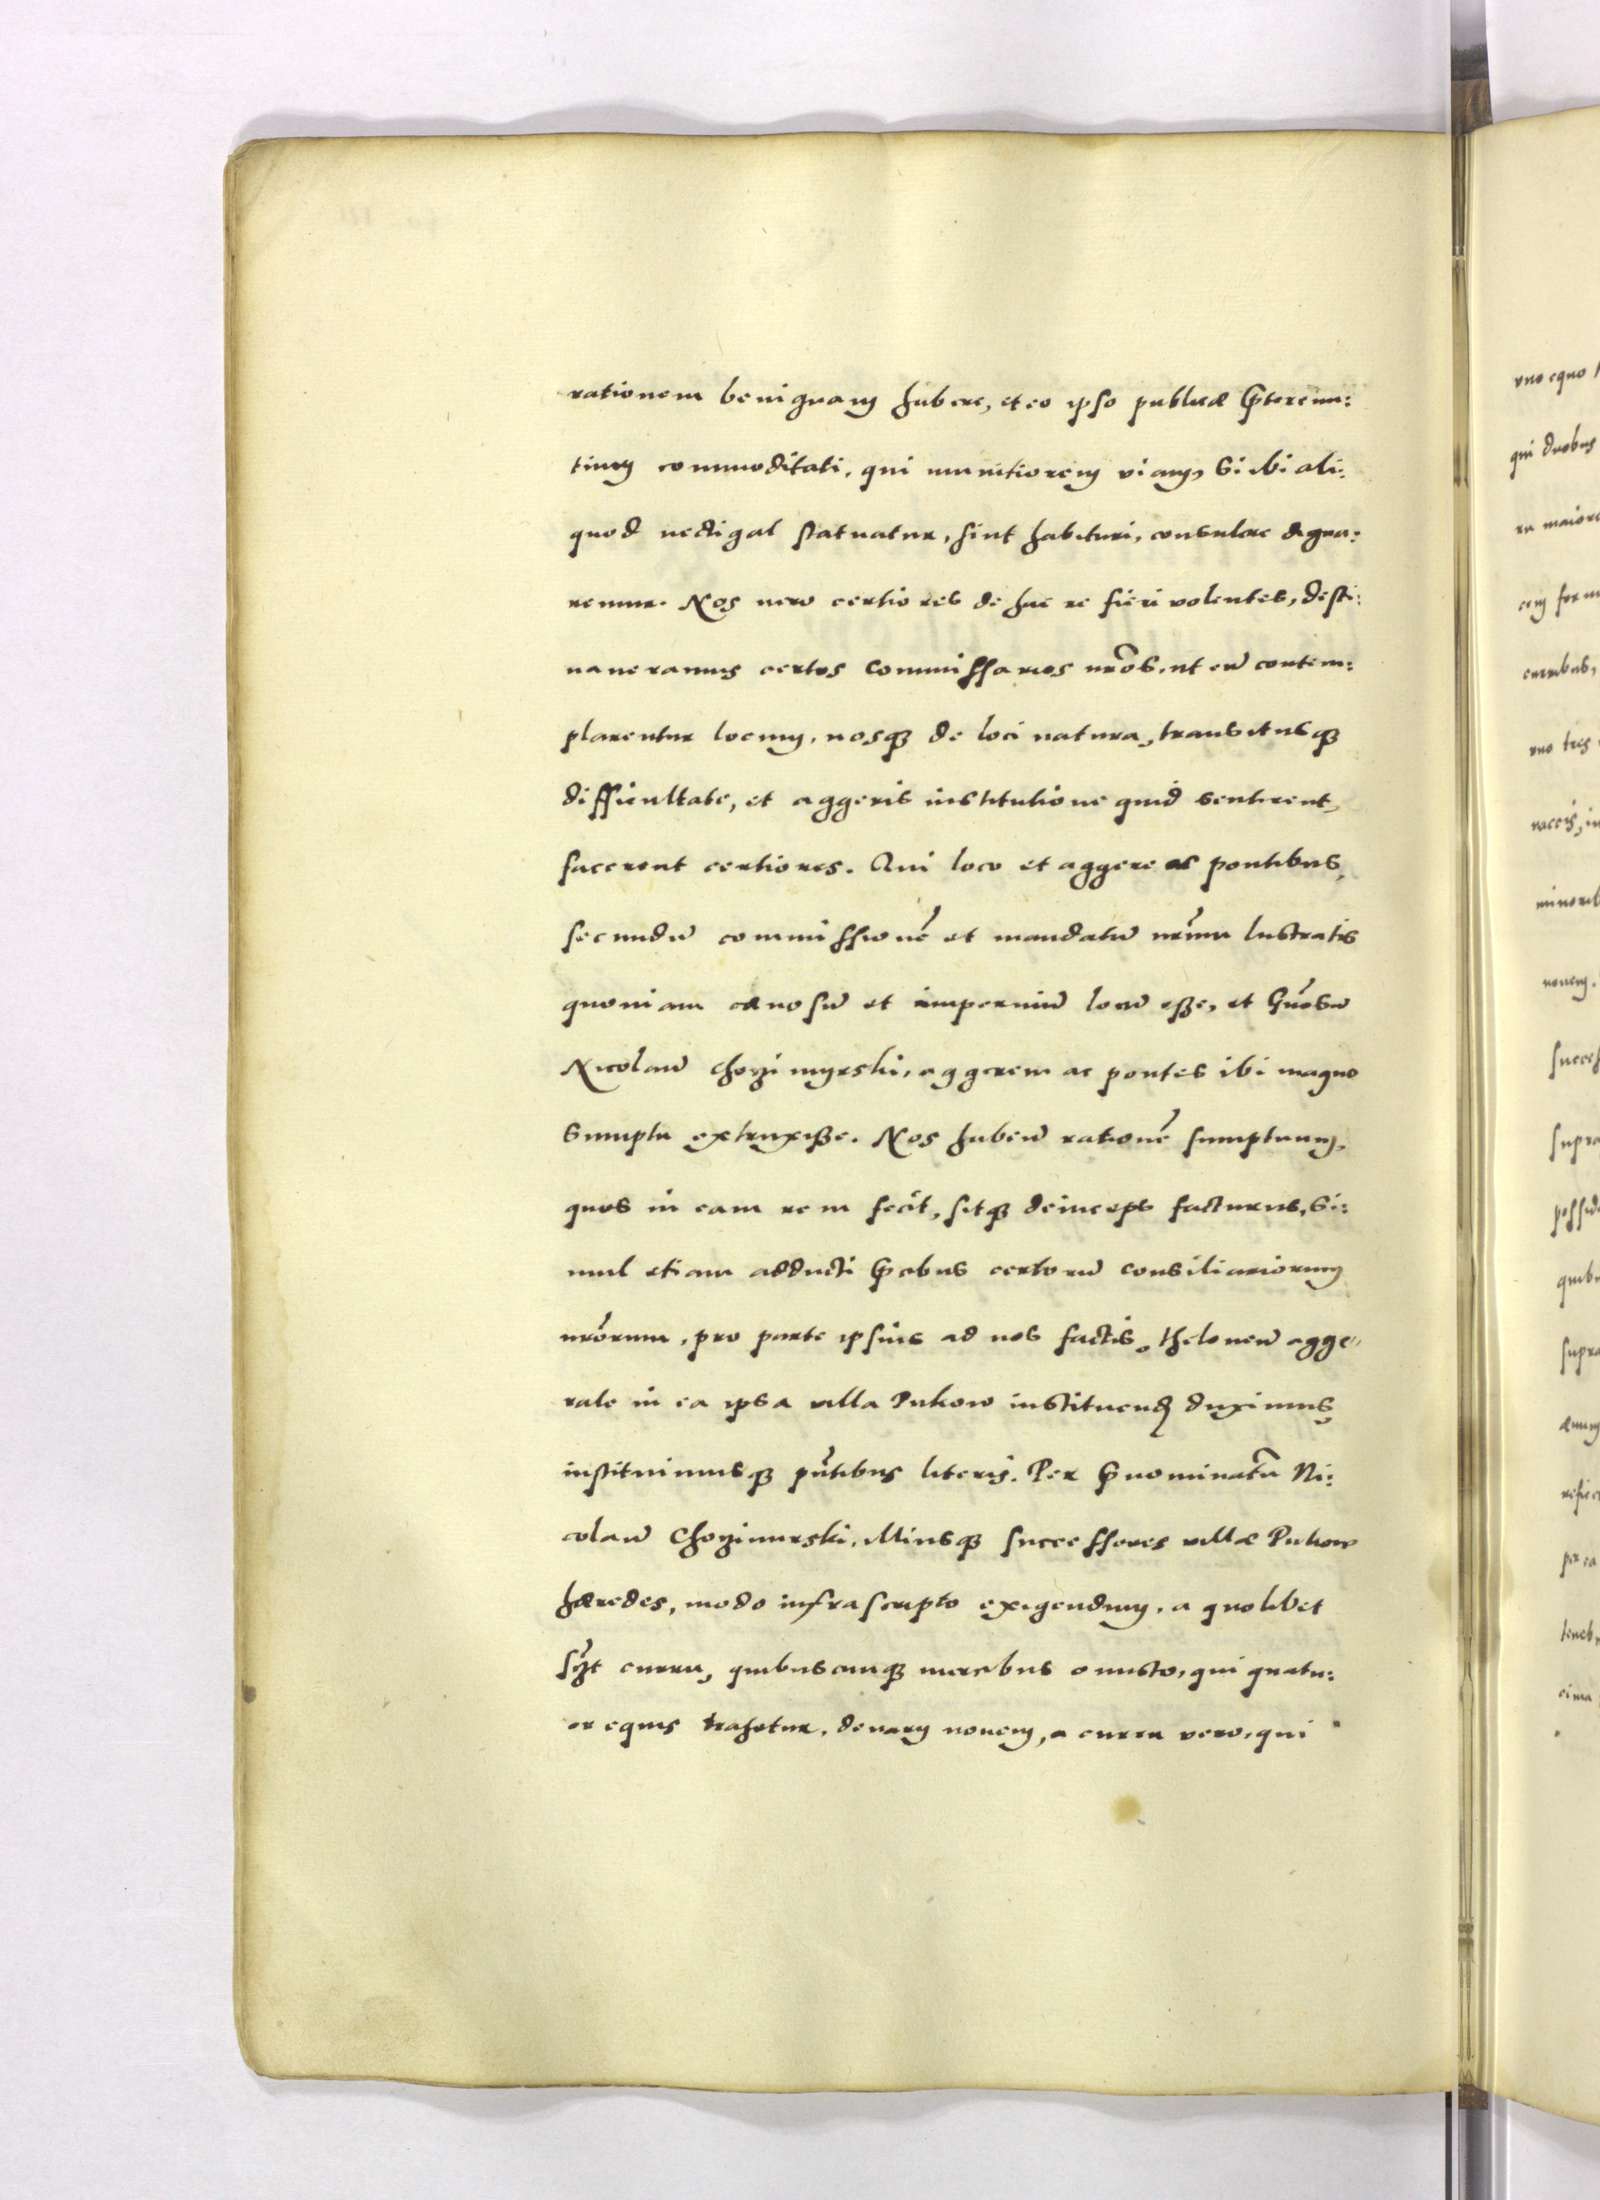 rationem benignam habere, et eo ipso publicæ p̃tereun:
tium commoditati, qui munitiorem viam, si ibi ali:
quod vectigal statuatur, sint habituri, consulere digna:
remur. Nos vero certiores de hac re fieri volentes, desti:
naueramus certos commissarios nr̃os, ut eũ contem:
plarentur locum, nosq̃ de loci natura, transitusq̃
difficultate, et aggeris institutione quid sentirent,
facerent certiores. Qui loco et aggere ac pontibus,
secundũ commissionẽ et mandatũ nr̃um lustratis
quoniam cænosũ et imperuiũ locũ esse, et Gñosũ
Nicolaũ Chozimyrski, aggerem ac pontes ibi magno
sumptu extruxisse. Nos habẽ rationẽ sumptuum,
quos in eam rem fecit, sitq̃ deinceps facturus, si:
mul etiam adducti p̃cibus certorũ consiliariorum
nr̃orum, pro parte ipsius ad nos factis, theloneũ agge:
rale in ea ipsa villa Pukow instituend̃ duximus,
instituimusq̃ pñtibus literis. Per p̃nominatũ Ni:
colaũ Chozimirski, illiusq̃ successores villæ Pukow
hæredes, modo infrascripto exigendum, a quolibet
curru, quibuscunq̃ mercibus onusto, qui quatu:
or equis trahetur, denarij nouem, a curru vero, qui
vno equo
qui duobus
ra maiore
curribus,
vno tres
minorib
nouem.
supra
supra
per ea